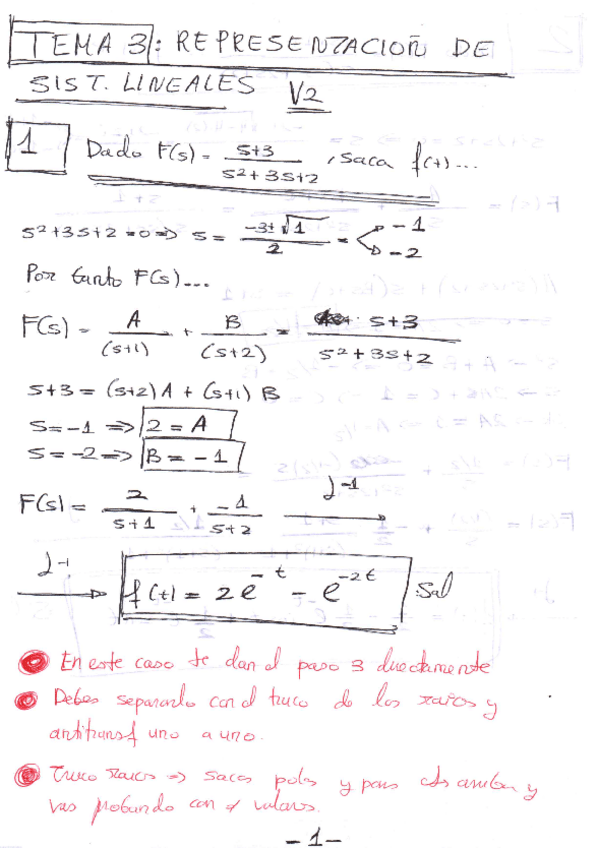 TEMA 3: REPRESENTACIOÑ DE
SIST. LINEALES V2
1 Dado F(s) = (s+3)/(s²+3s+2), saca f(t)...
s²+3s+2=0 => s = (-3±√1)/2 = < -1
-2
Por tanto F(s)...
F(s) = A/(s+1) + B/(s+2) = s+3/(s²+3s+2)
s+3 = (s+2)A + (s+1)B
s=-1 => 2 = A
s=-2 => B = -1
F(s) = 2/(s+1) + -1/(s+2) L⁻¹ →
L⁻¹ → f(t) = 2e^-t - e^-2t Sol
En este caso te dan el paso 3 directamente
Debes separarlo con el truco de las raices y
antitransf uno a uno.
Truco raices => sacas polos y pones arriba y
vas probando con valores.
-1-